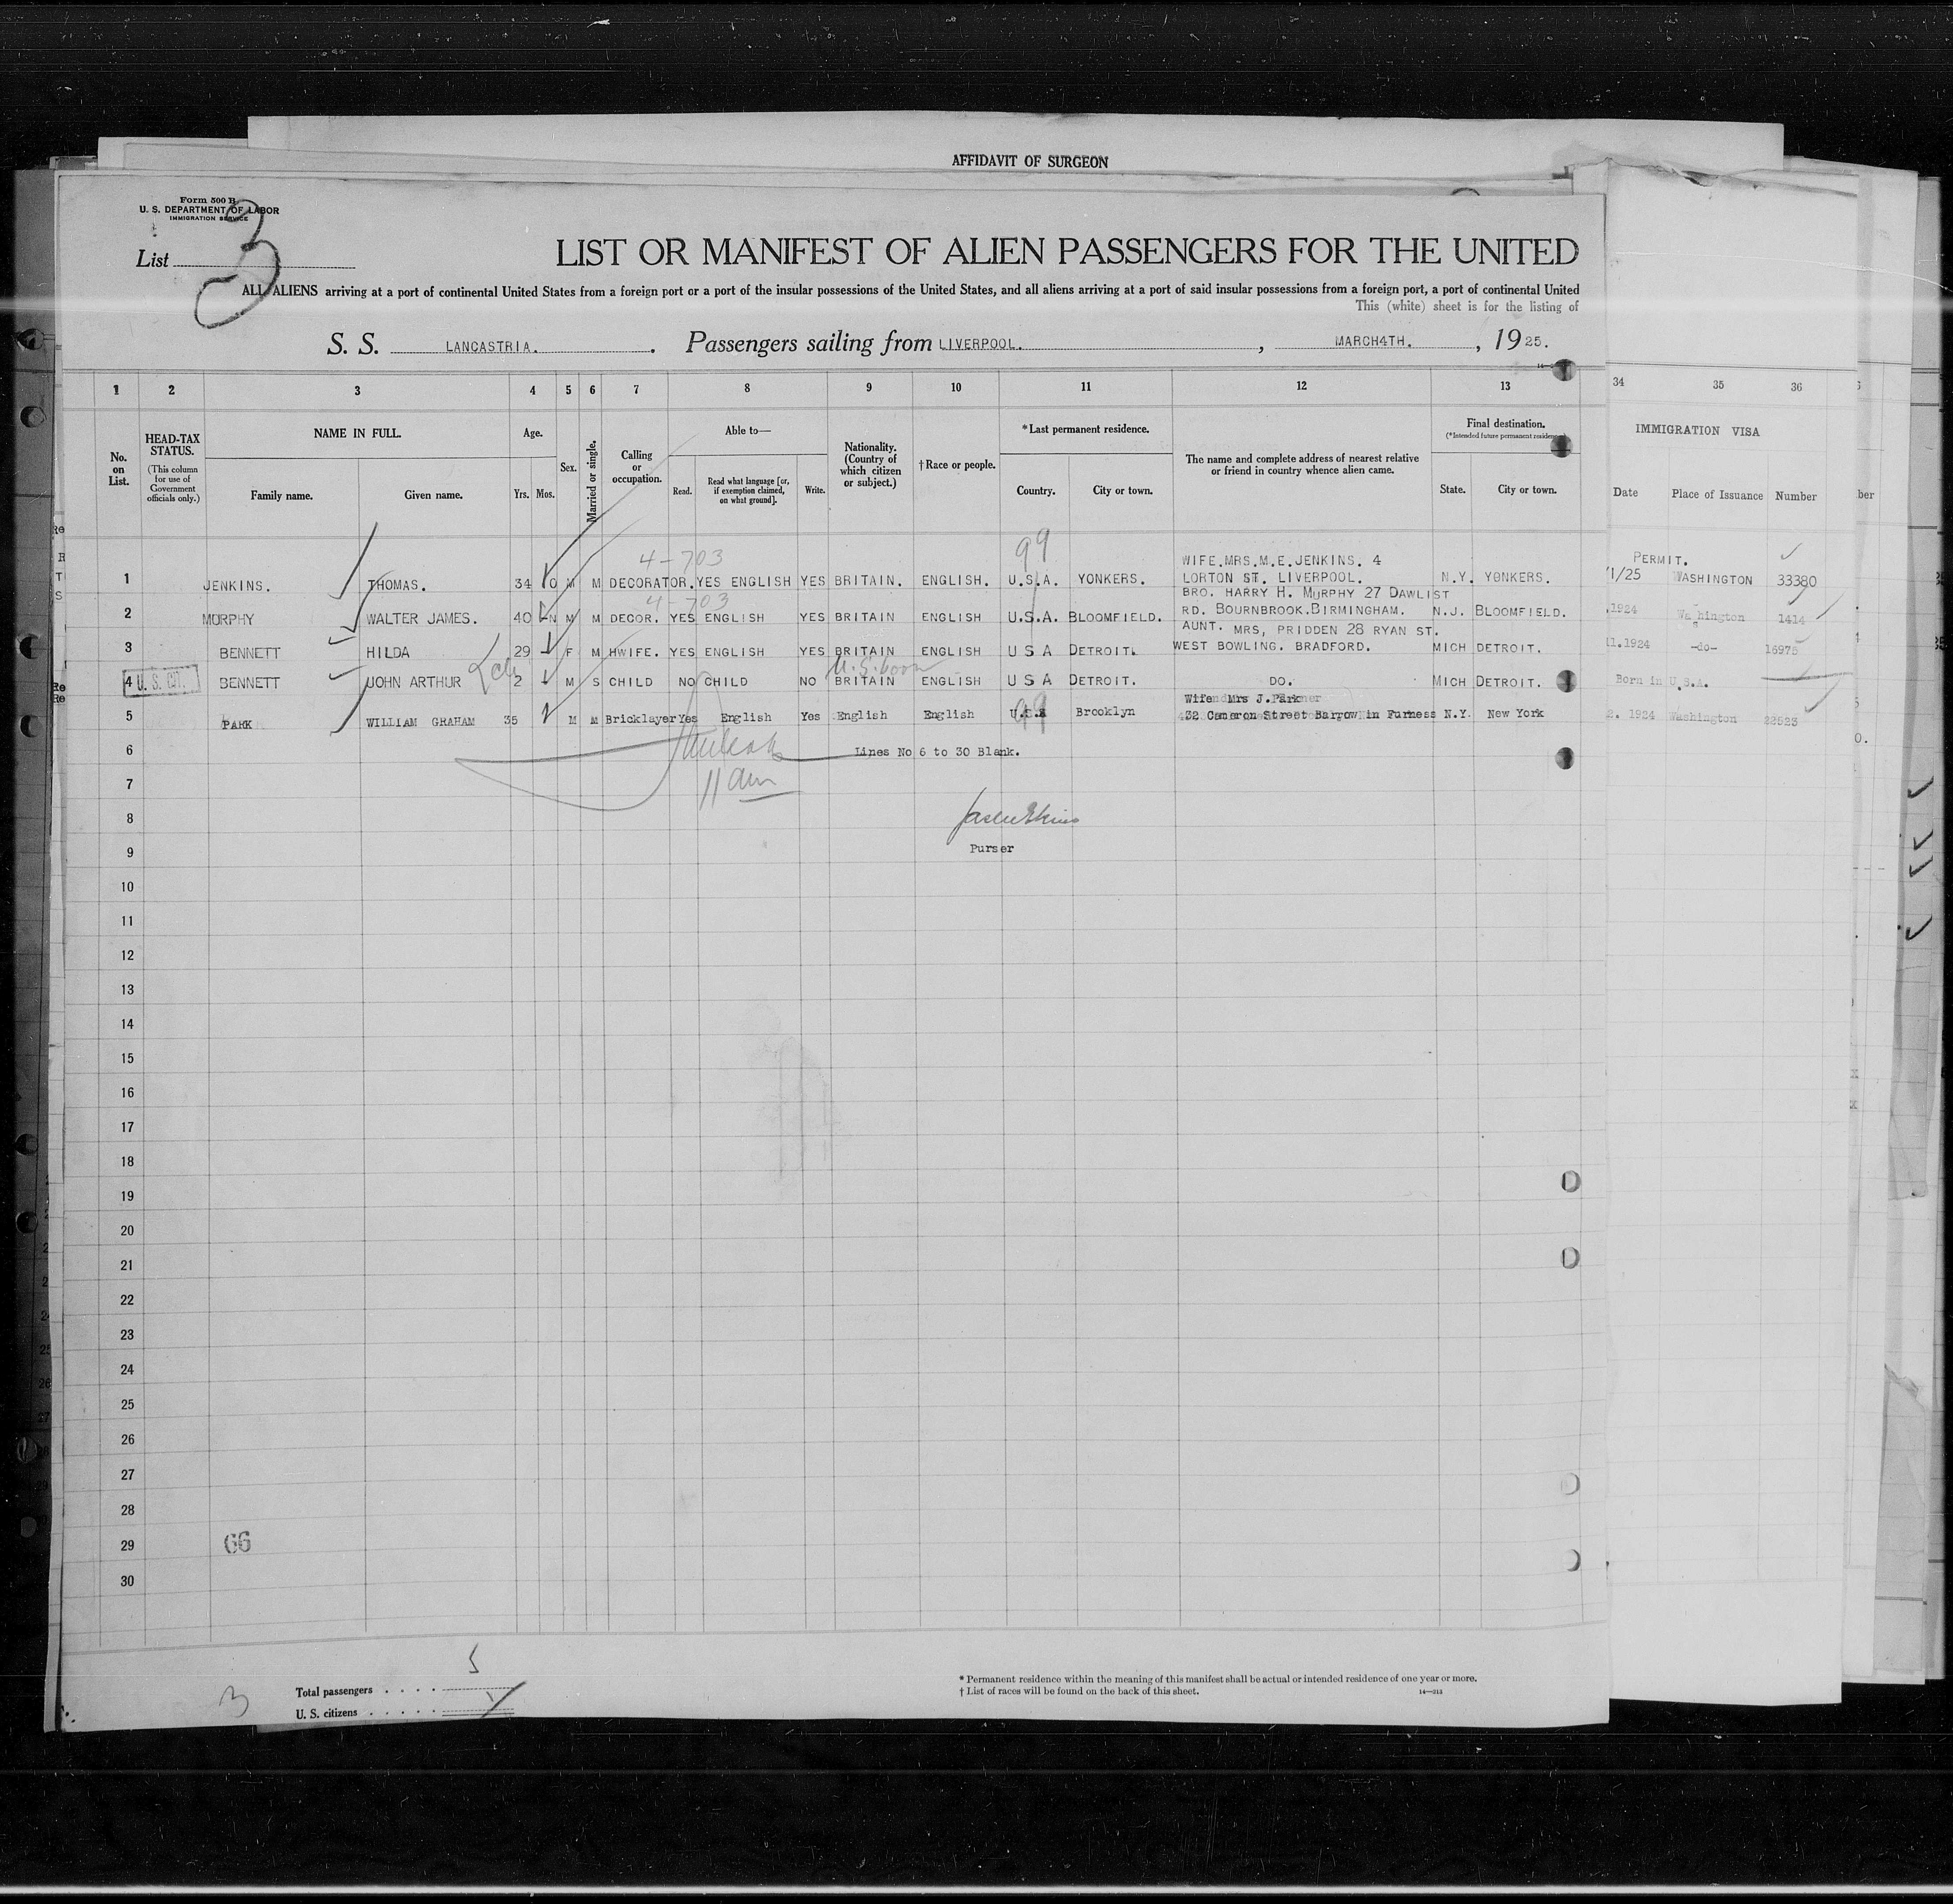 AFFIDAVIT OF SURGEON
Form 500 B
U. S. DEPARTMENT OF LABOR
IMMIGRATION SERVICE
List 3
LIST OR MANIFEST OF ALIEN PASSENGERS FOR THE UNITED
ALL ALIENS arriving at a port of continental United States from a foreign port or a port of the insular possessions of the United States, and all aliens arriving at a port of said insular possessions from a foreign port, a port of continental United
This (white) sheet is for the listing of
S. S. LANCASTRIA. Passengers sailing from LIVERPOOL. , MARCH4TH. , 1925.
1 2 3 4 5 6 7 8 9 10 11 12 13 34 35 36
No. on List.
HEAD-TAX STATUS.
(This column for use of Government officials only.)
NAME IN FULL.
Family name. Given name.
Age.
Yrs. Mos.
Sex.
Married or single.
Calling or occupation.
Able to—
Read. Read what language [or, if exemption claimed, on what ground]. Write.
Nationality. (Country of which citizen or subject.)
† Race or people.
* Last permanent residence.
Country. City or town.
The name and complete address of nearest relative or friend in country whence alien came.
Final destination.
(*Intended future permanent residence.)
State. City or town.
IMMIGRATION VISA
Date Place of Issuance Number
4-703 99
WIFE.MRS.M.E.JENKINS. 4 PERMIT.
1 JENKINS. THOMAS. 34 10 M M DECORATOR. YES ENGLISH YES BRITAIN. ENGLISH. U.S.A. YONKERS. LORTON ST. LIVERPOOL. N.Y. YONKERS. 1/25 WASHINGTON 33380
4-703
BRO. HARRY H. MURPHY 27 DAWLIST
2 MURPHY WALTER JAMES. 40 M M DECOR. YES ENGLISH YES BRITAIN ENGLISH U.S.A. BLOOMFIELD. RD. BOURNBROOK.BIRMINGHAM. N.J. BLOOMFIELD. .1924 Washington 1414
AUNT. MRS, PRIDDEN 28 RYAN ST.
3 BENNETT HILDA 29 F M HWIFE. YES ENGLISH YES BRITAIN ENGLISH U S A DETROIT. WEST BOWLING. BRADFORD. MICH DETROIT. 1.1924 -do- 16975
U.S. born
4 U. S. CIT. BENNETT JOHN ARTHUR 2 M S CHILD NO CHILD NO BRITAIN ENGLISH U S A DETROIT. DO. MICH DETROIT. Born in U.S.A.
99
Wife Mrs J.Park
5 PARK WILLIAM GRAHAM 35 M M Bricklayer Yes English Yes English English U.S.A Brooklyn 32 Cameron Street Barrow in Furness N.Y. New York 2. 1924 Washington 22523
6 Lines No 6 to 30 Blank.
11 am
7
8
Purser
9
10
11
12
13
14
15
16
17
18
19
20
21
22
23
24
25
26
27
28
29 66
30
Total passengers . . . . 5
U. S. citizens . . . . . 1
3
* Permanent residence within the meaning of this manifest shall be actual or intended residence of one year or more.
† List of races will be found on the back of this sheet.
14—213